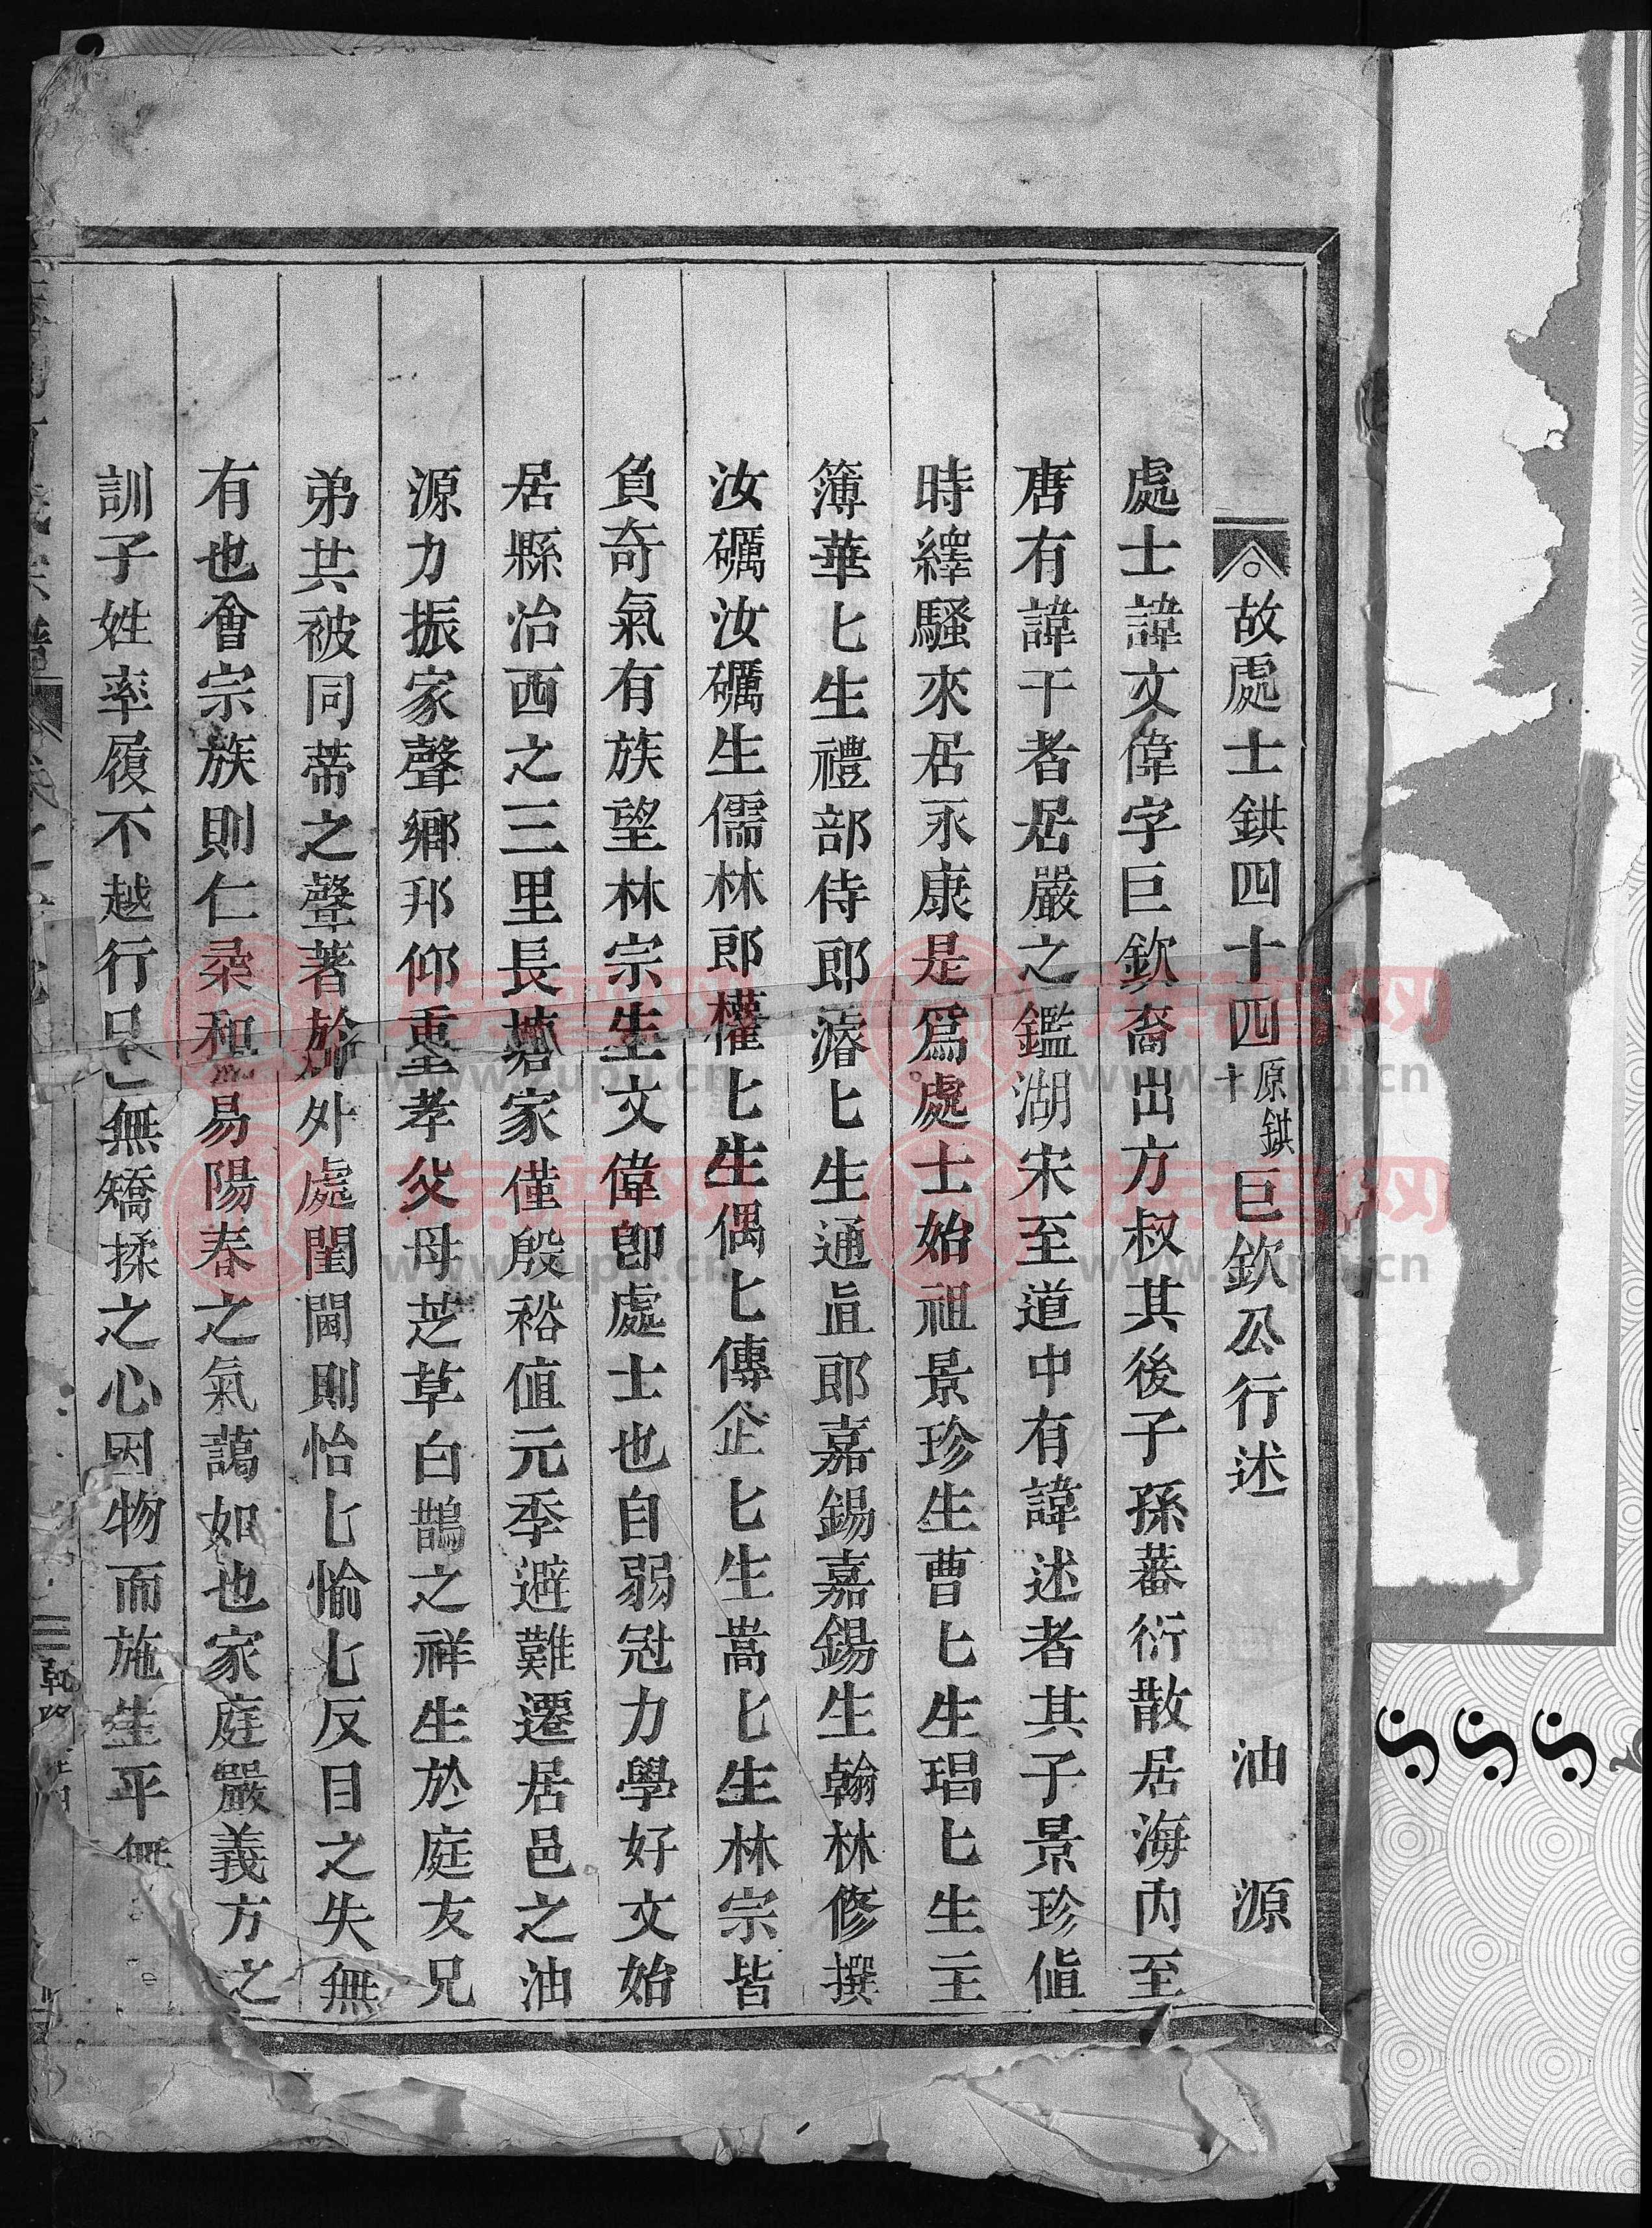 故處士鉷四十四原鉷十巨欽公行述 油源
處士諱文偉字巨欽裔出方叔其後子孫蕃衍散居海內至
唐有諱干者居嚴之鑑湖宋至道中有諱述者其子景珍值
時繹騷來居永康是為處士始祖景珍生曹匕生琩匕生主
簿華匕生禮部侍郎濬匕生通直郎嘉錫嘉錫生翰林修撰
汝礪汝礪生儒林郎權匕生偶匕傳企匕生嵩匕生林宗皆
負奇氣有族望林宗生文偉卽處士也自弱冠力學好文始
居縣治西之三里長墈家僅殷裕值元季避難遷居邑之油
源力振家聲鄉邦仰重孝父母芝草白鵲之祥生於庭友兄
弟共被同蒂之聲著於外處閨閫則怡匕愉匕反目之失無
有也會宗族則仁柔和易陽春之氣藹如也家庭嚴義方之
訓子姓率履不越行己無矯揉之心因物而施生平無
族谱网
www.zupu.cn
族谱网
www.zupu.cn
族谱网
www.zupu.cn
族谱网
www.zupu.cn